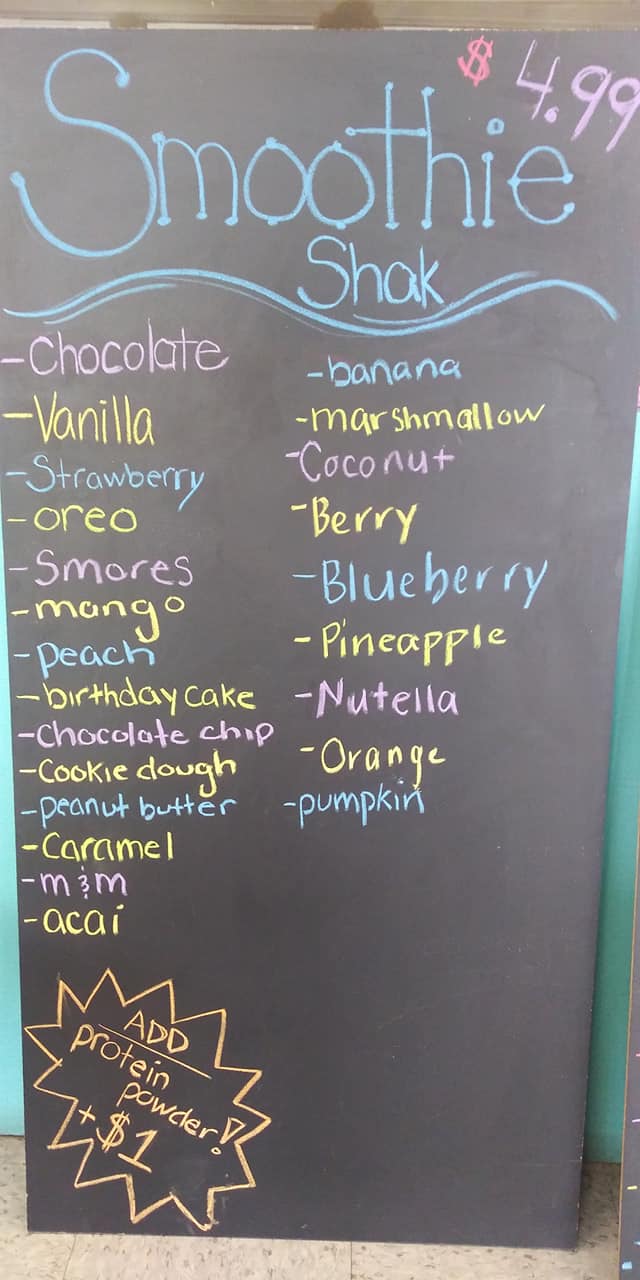 $ 4.99
Smoothie
Shak
-Chocolate
-Vanilla
-Strawberry
-oreo
-Smores
-mango
-peach
-birthday cake
-Chocolate chip
-Cookie dough
-peanut butter
-Caramel
-m&m
-acai
-banana
-marshmallow
-Coconut
-Berry
-Blueberry
-Pineapple
-Nutella
-Orange
-pumpkin
ADD
protein
powder!
+$1